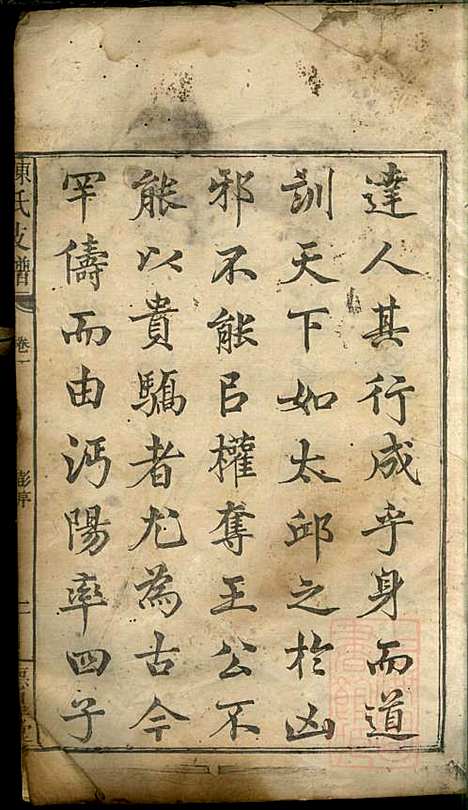 達人其行成乎身而道
訓天下如太邱之於凶
邪不能㠯權奪王公不
能以貴驕者尤為古今
罕儔而由沔陽率四子
陳氏支譜
卷一
彭序
二